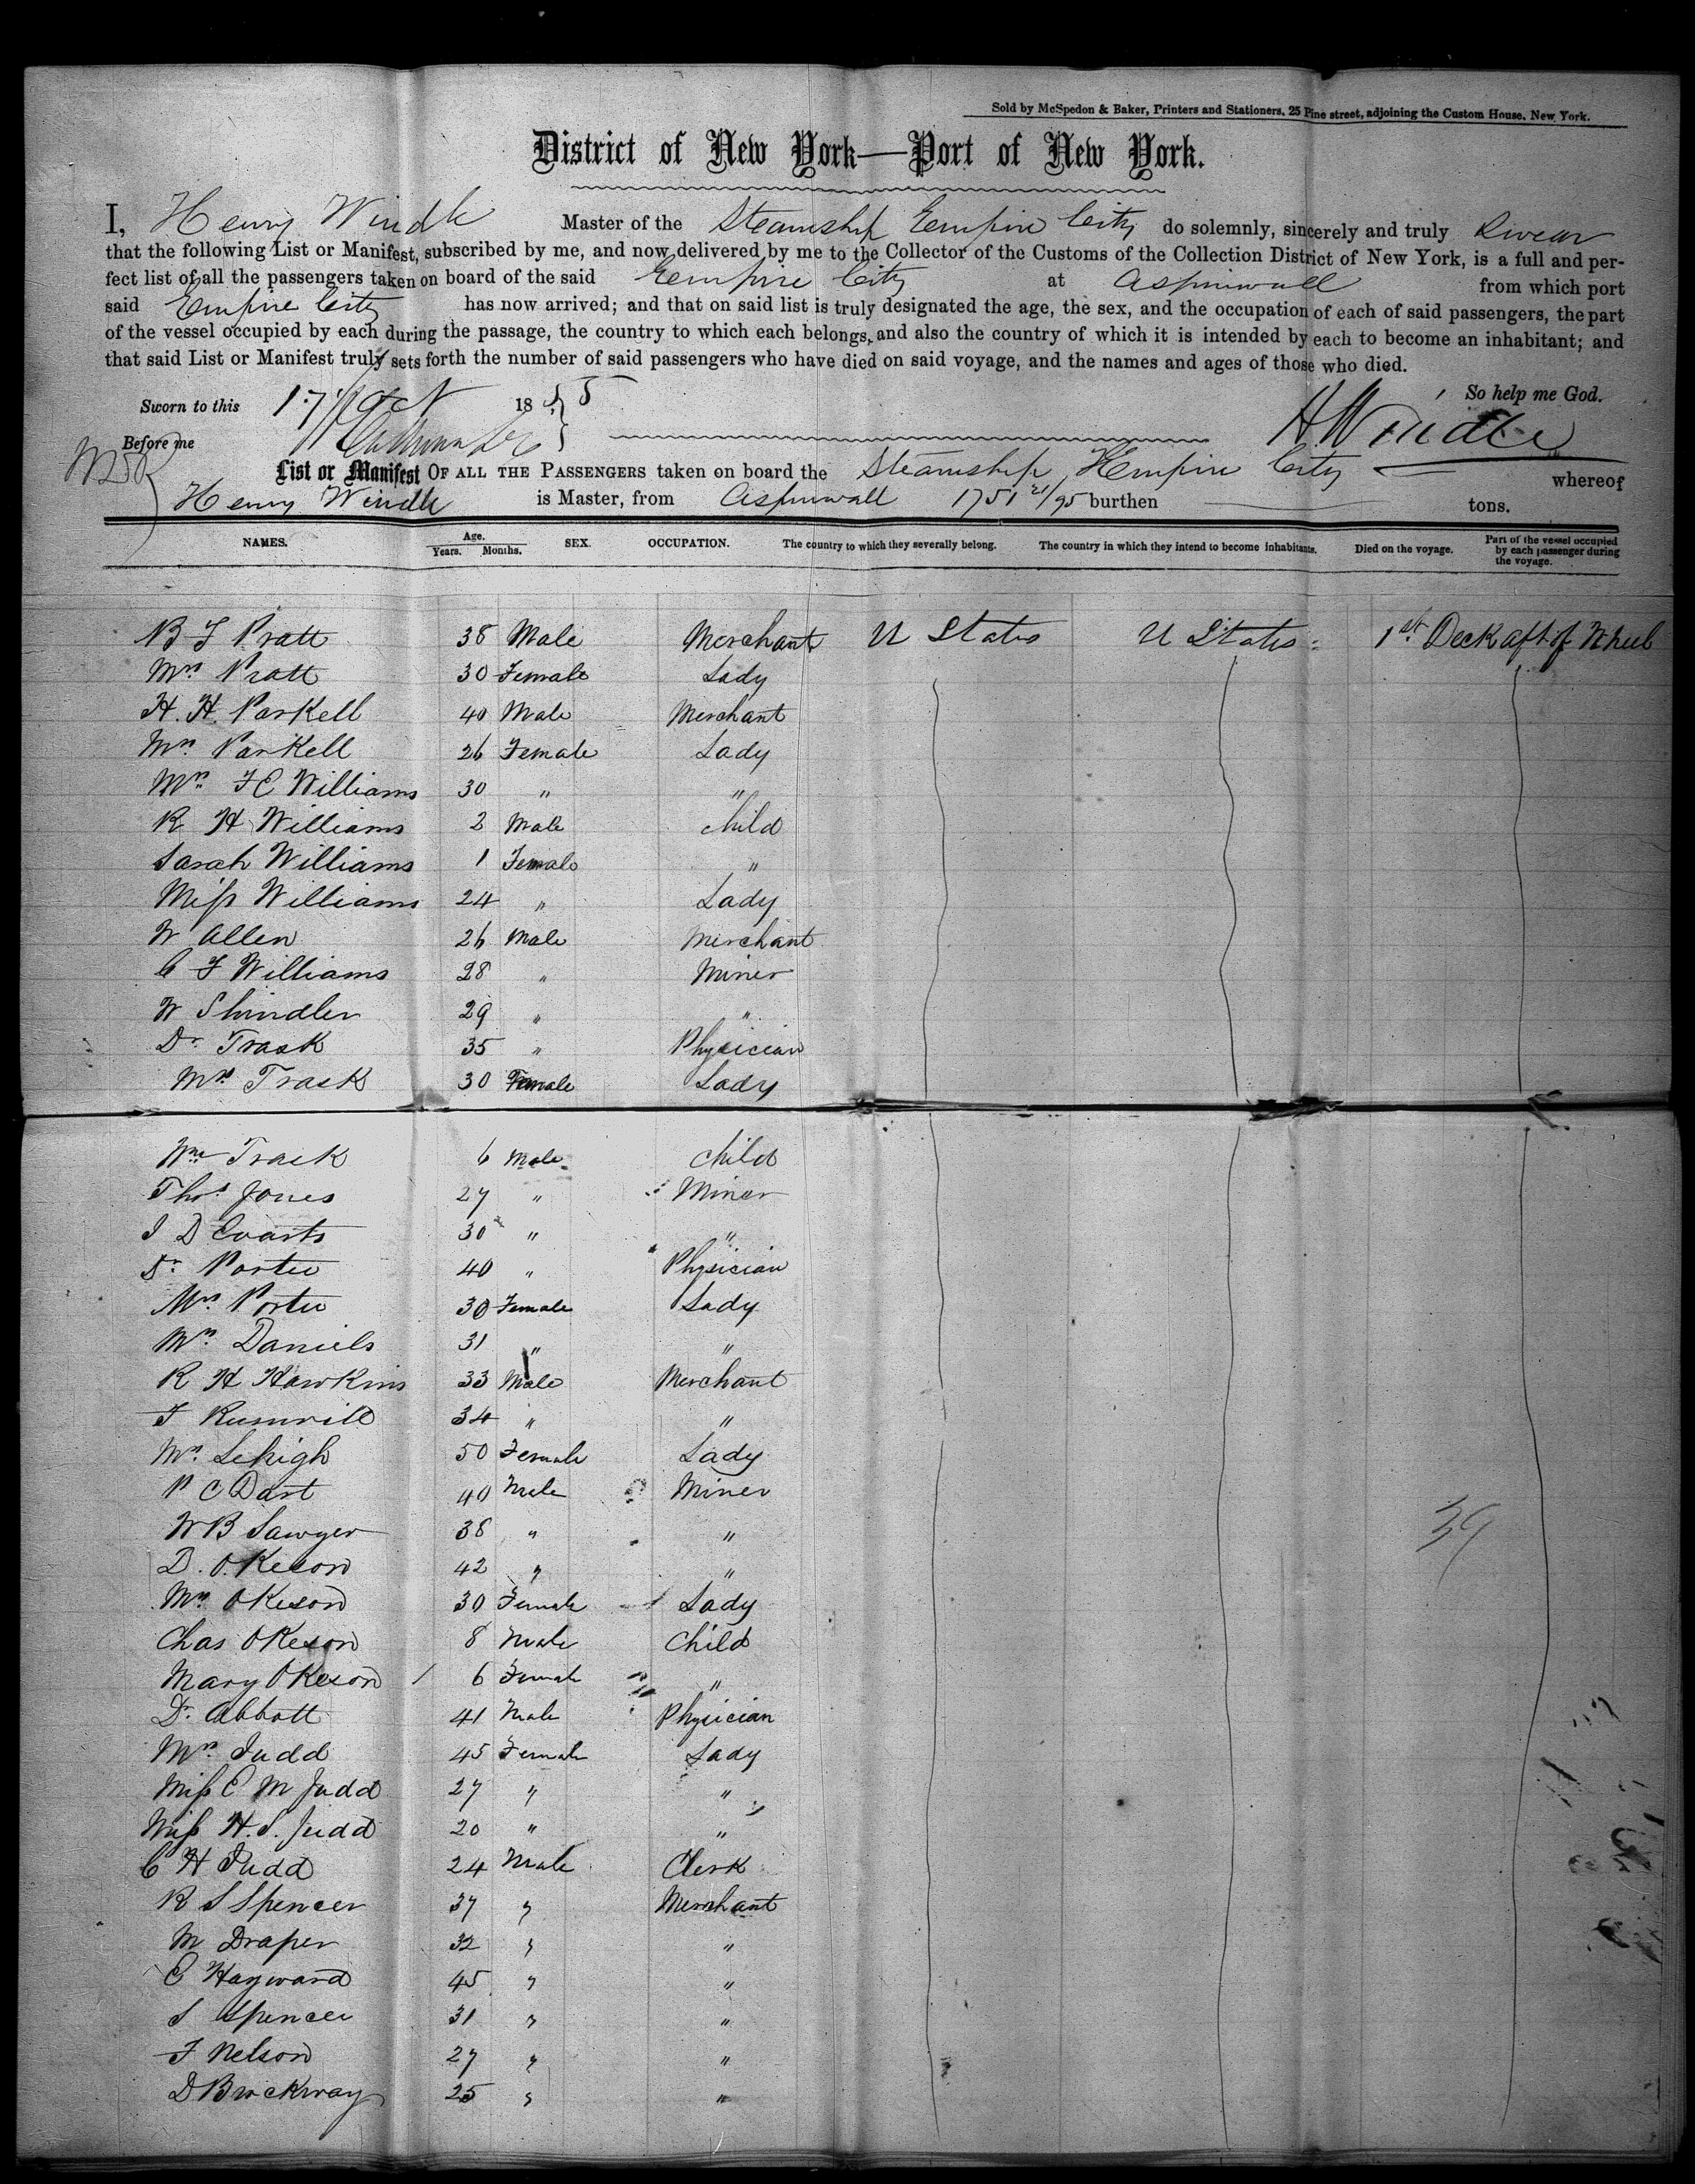 Sold by McSpedon & Baker, Printers and Stationers, 25 Pine street, adjoining the Custom House, New York.
District of New York—Port of New York.
I, Henry Windle Master of the Steamship Empire City do solemnly, sincerely and truly Swear
that the following List or Manifest, subscribed by me, and now delivered by me to the Collector of the Customs of the Collection District of New York, is a full and per-
fect list of all the passengers taken on board of the said Empire City at Aspinwall from which port
said Empire City has now arrived; and that on said list is truly designated the age, the sex, and the occupation of each of said passengers, the part
of the vessel occupied by each during the passage, the country to which each belongs, and also the country of which it is intended by each to become an inhabitant; and
that said List or Manifest truly sets forth the number of said passengers who have died on said voyage, and the names and ages of those who died.
Sworn to this 17 Oct 1855 So help me God.
Before me H Windle
List or Manifest OF ALL THE PASSENGERS taken on board the Steamship Empire City whereof
Henry Windle is Master, from Aspinwall 1751 21/95 burthen tons.
NAMES. Age. Years. Months. SEX. OCCUPATION. The country to which they severally belong. The country in which they intend to become inhabitants. Died on the voyage. Part of the vessel occupied by each passenger during the voyage.
B F Pratt 38 Male Merchant U States U States 1st Deck aft of Wheel
Mrs Pratt 30 Female Lady
H. H. Parkell 40 Male Merchant
Mrs Parkell 26 Female Lady
Mrs F E Williams 30 " "
R H Williams 2 Male child
Sarah Williams 1 Female "
Miss Williams 24 " Lady
W Allen 26 Male Merchant
C F Williams 28 " Miner
W Shindler 29 " "
Dr Trask 35 " Physician
Mrs Trask 30 Female Lady
Wm Trask 6 Male child
Thos Jones 27 " Miner
I D Evarts 30 " "
Dr Porter 40 " Physician
Mrs Porter 30 Female Lady
Mrs Daniels 31 " "
R H Hawkins 33 Male Merchant
F Rumrill 34 " "
Mrs Lehigh 50 Female Lady
P C Dart 40 Male Miner
W B Sawyer 38 " "
D. OKeson 42 " "
Mrs OKeson 30 Female Lady
Chas OKeson 8 Male Child
Mary OKeson 6 Female "
Dr Abbott 41 Male Physician
Mrs Judd 45 Female Lady
Miss E M Judd 27 " "
Miss H. S. Judd 20 " "
C H Judd 24 Male Clerk
R S Spencer 37 " Merchant
M Draper 32 " "
E Hayward 45 " "
S Spencer 31 " "
F Nelson 27 " "
D Brockway 25 " "
39